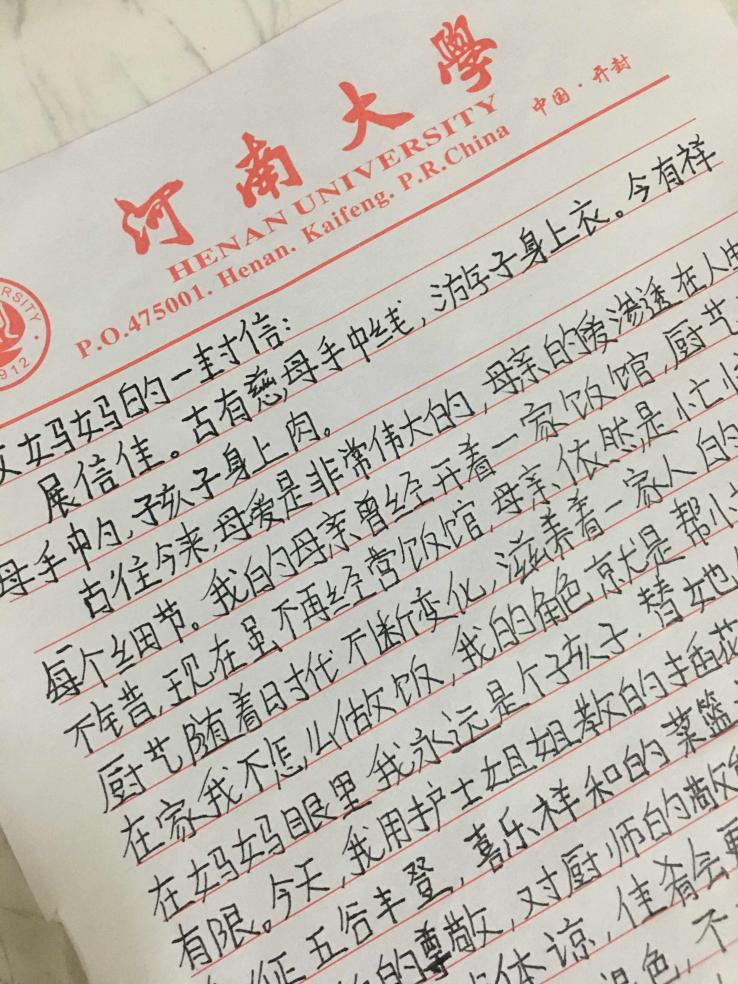 河南大學
中国·开封
HENAN UNIVERSITY
P.O.475001. Henan. Kaifeng. P.R.China
RSITY
912
妈妈的一封信:
展信佳。古有慈母手中线,游子身上衣。今有祥
母手中勺,孩子身上肉。
古往今来,母爱是非常伟大的,母亲的爱渗透在人生
每个细节。我的母亲曾经开着一家饭馆,厨艺
不错,现在虽不再经营饭馆,母亲依然是忙忙
厨艺随着时代不断变化,滋养着一家人的
在家我不怎么做饭,我的角色就是帮小
在妈妈眼里我永远是个孩子.替她
有限。今天,我用护士姐姐教的插花
征五谷丰登,喜乐祥和的菜篮
的尊敬,对厨师的敬
体谅,佳肴会
色,不